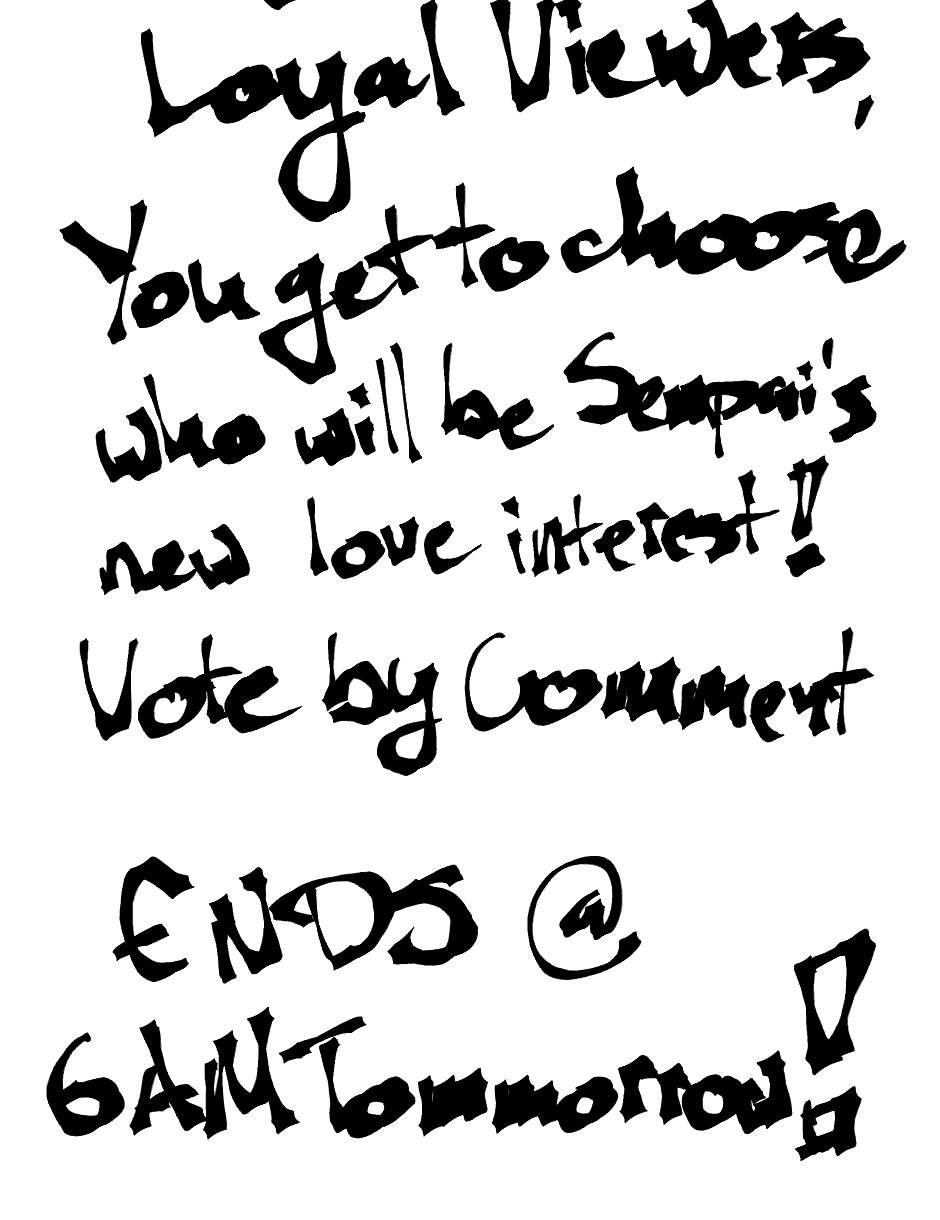 Loyal Viewers,
You get to choose
who will be Senpai's
new love interest!
Vote by Comment
ENDS @
6AM Tommorrow!